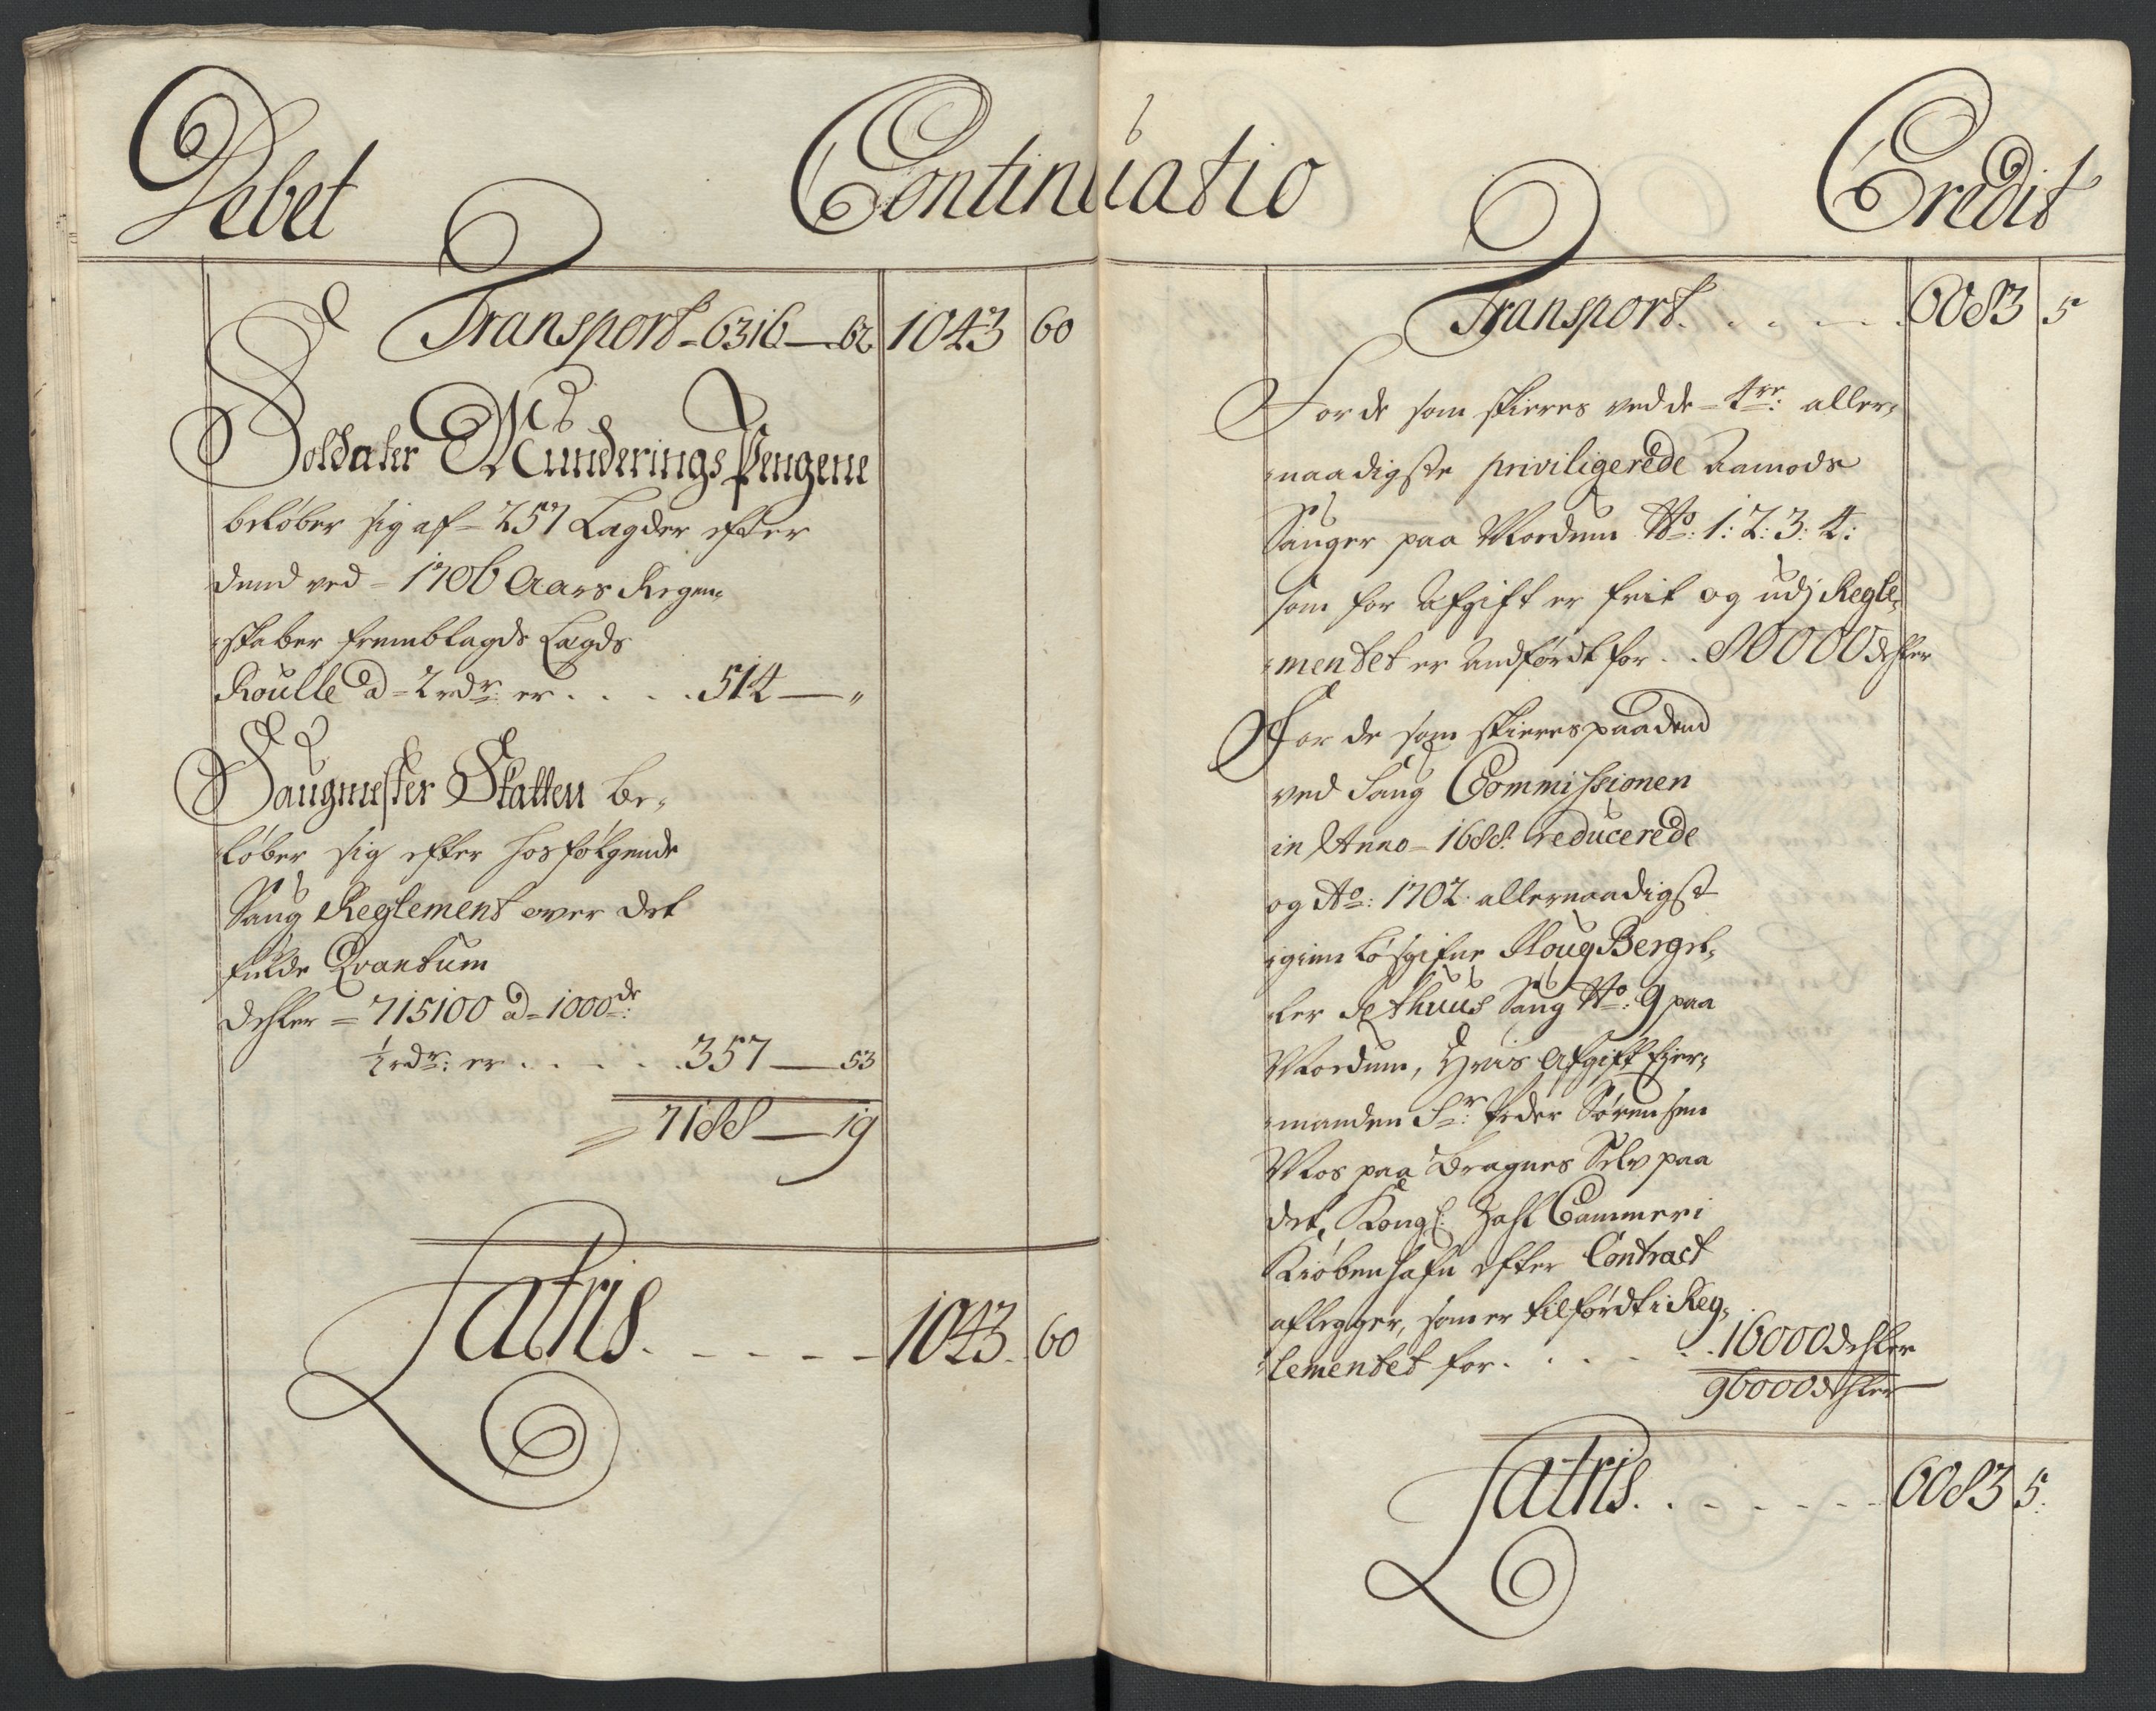 Debet Continuatio Credit
Transport - 6316 — 62 1043 60
Soldater Munderings Pengene
beløber sig af - 257 Lagder efter
dend ved - 1706 Aars Regen-
skaber fremblagde Lægds
Roulle a - 2 rdr: er . . . . 514 — "
Saugmester Skatten be-
løber sig efter hosfølgende
Saug Reglement over det
fulde Qvantum
dehler = 715100 a - 1000de:
½ rdr: er . . . . . 357 — 53
7188 — 19
Latris . - - - - 1043 60
Transport . . . . 6083 5
For de som skieres ved de - 4re: aller-
naadigste priviligerede Aamods
Sauger paa Mordum No: 1: 2: 3: 4:
som for Afgift er frit og udj Regle-
mentet er Andført for . . 80000 dehler
For de som skieres paa dend
ved Saug Commissionen
in Anno - 1688 reducerede
og Ao: 1702 allernaadigst
igien Løsgifne Houg Bergel-
ler Sethuus Saug No: 9 paa
Mordum, Hvis Afgift Eyer-
manden Sr: Peder Sørensen
Mos paa Bragnes Selv paa
det Kongl: Zahl Cammer i
Kiøbenhafn efter Contract
aflegger, som er tilført i Reg-
lementet for . . . . . 16000 dehler
96000 dehler
Latris . . - - - - 6083 5